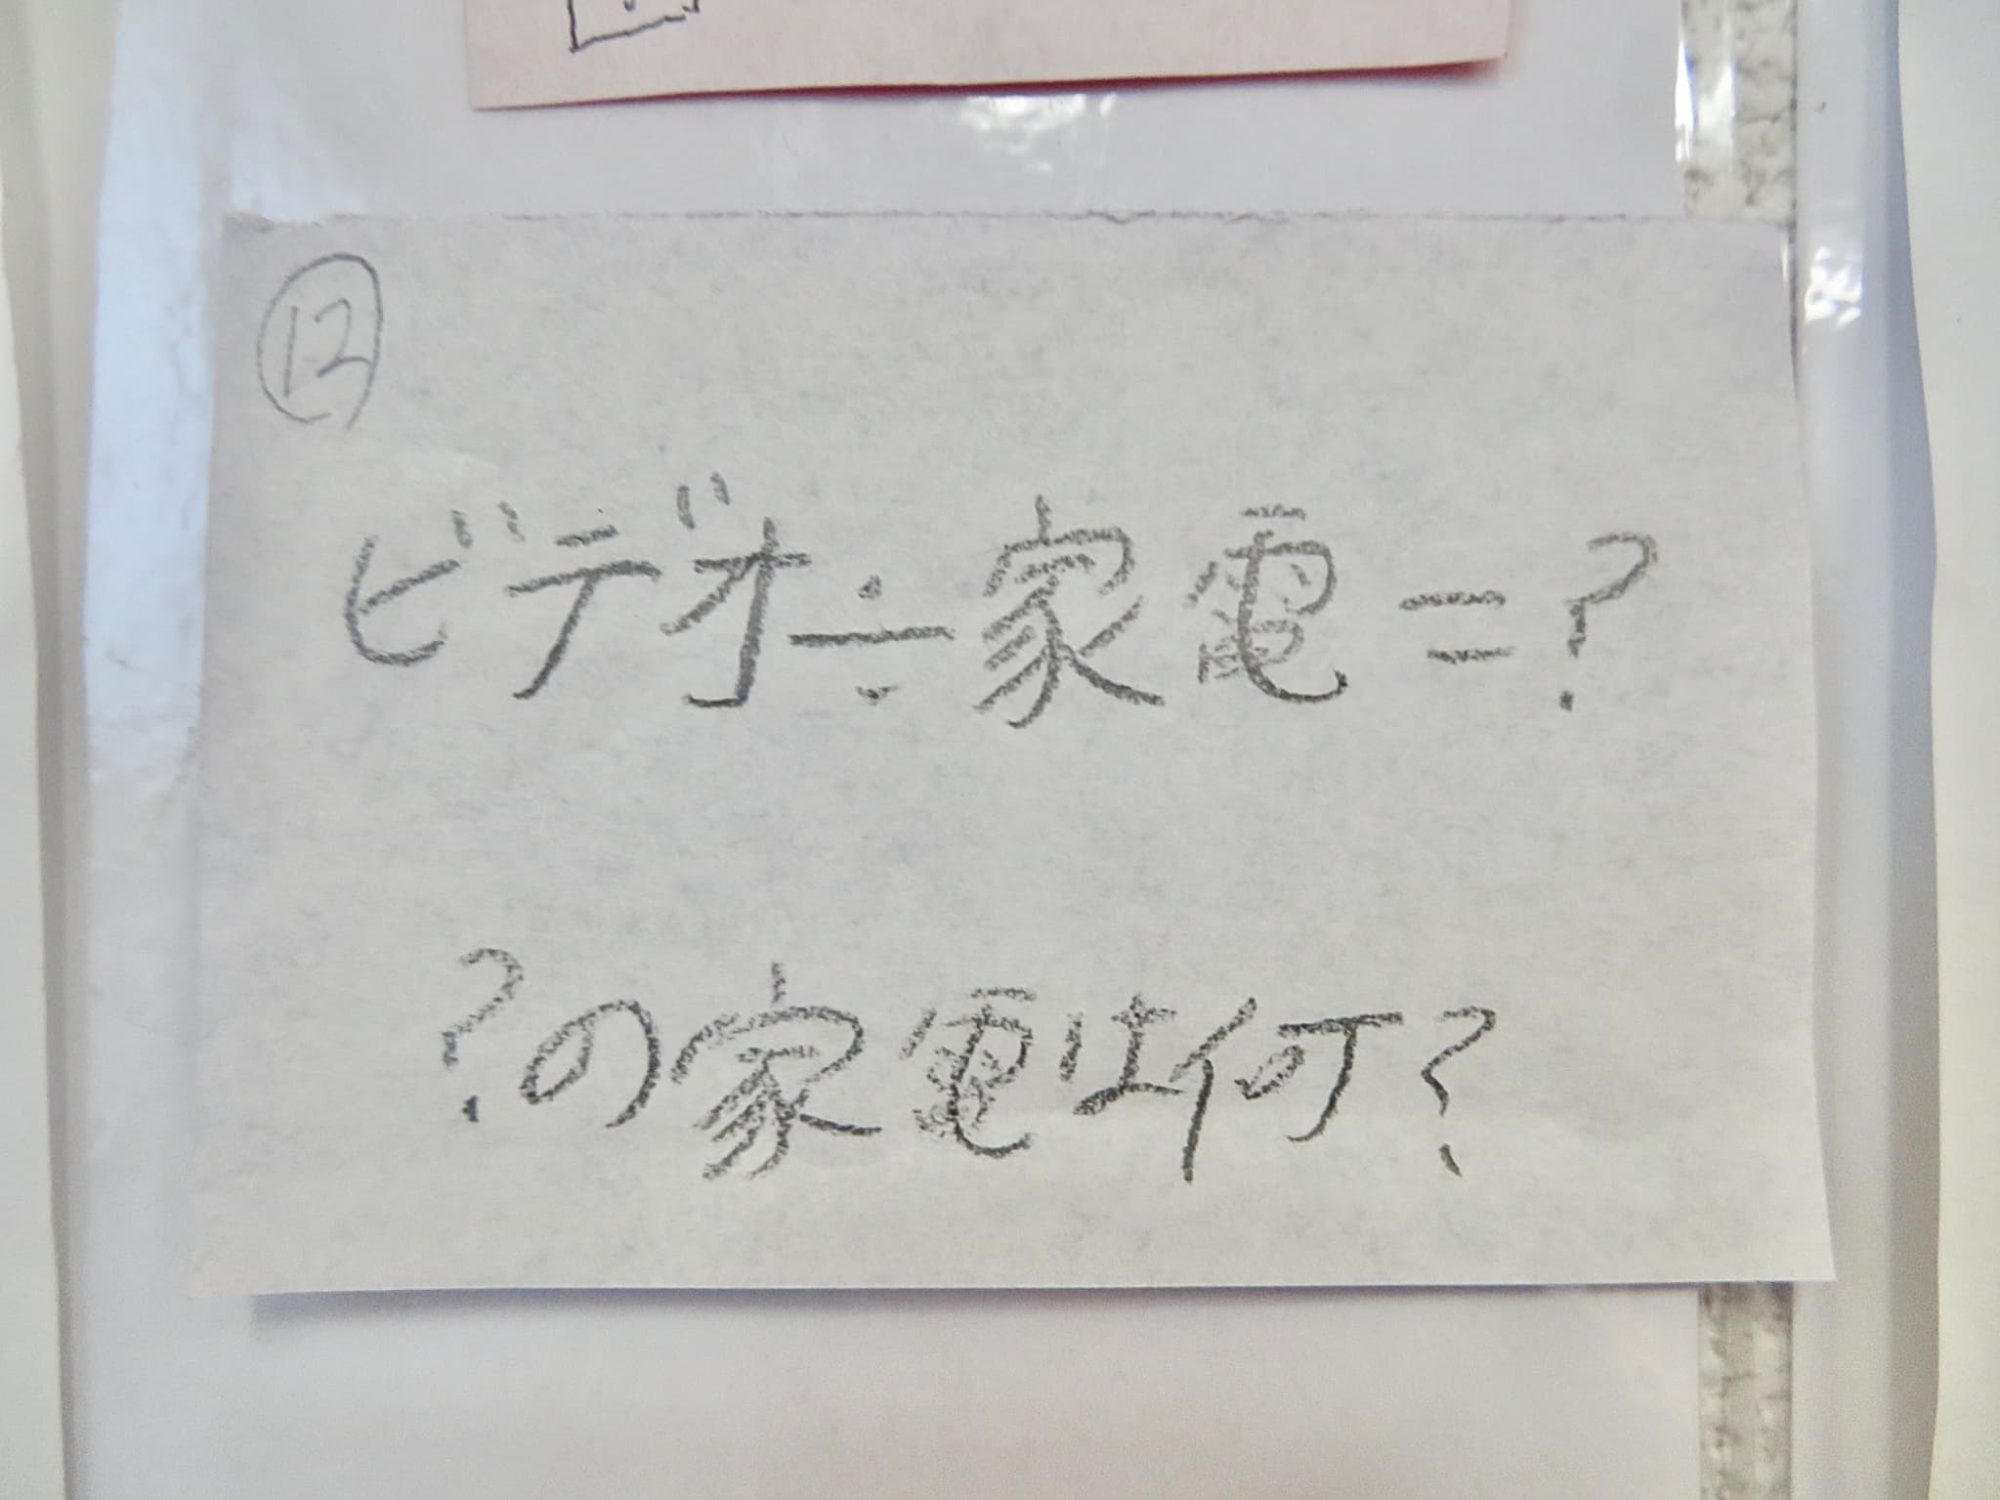 ⑫
ビデオ÷家電=?
?の家電は何?